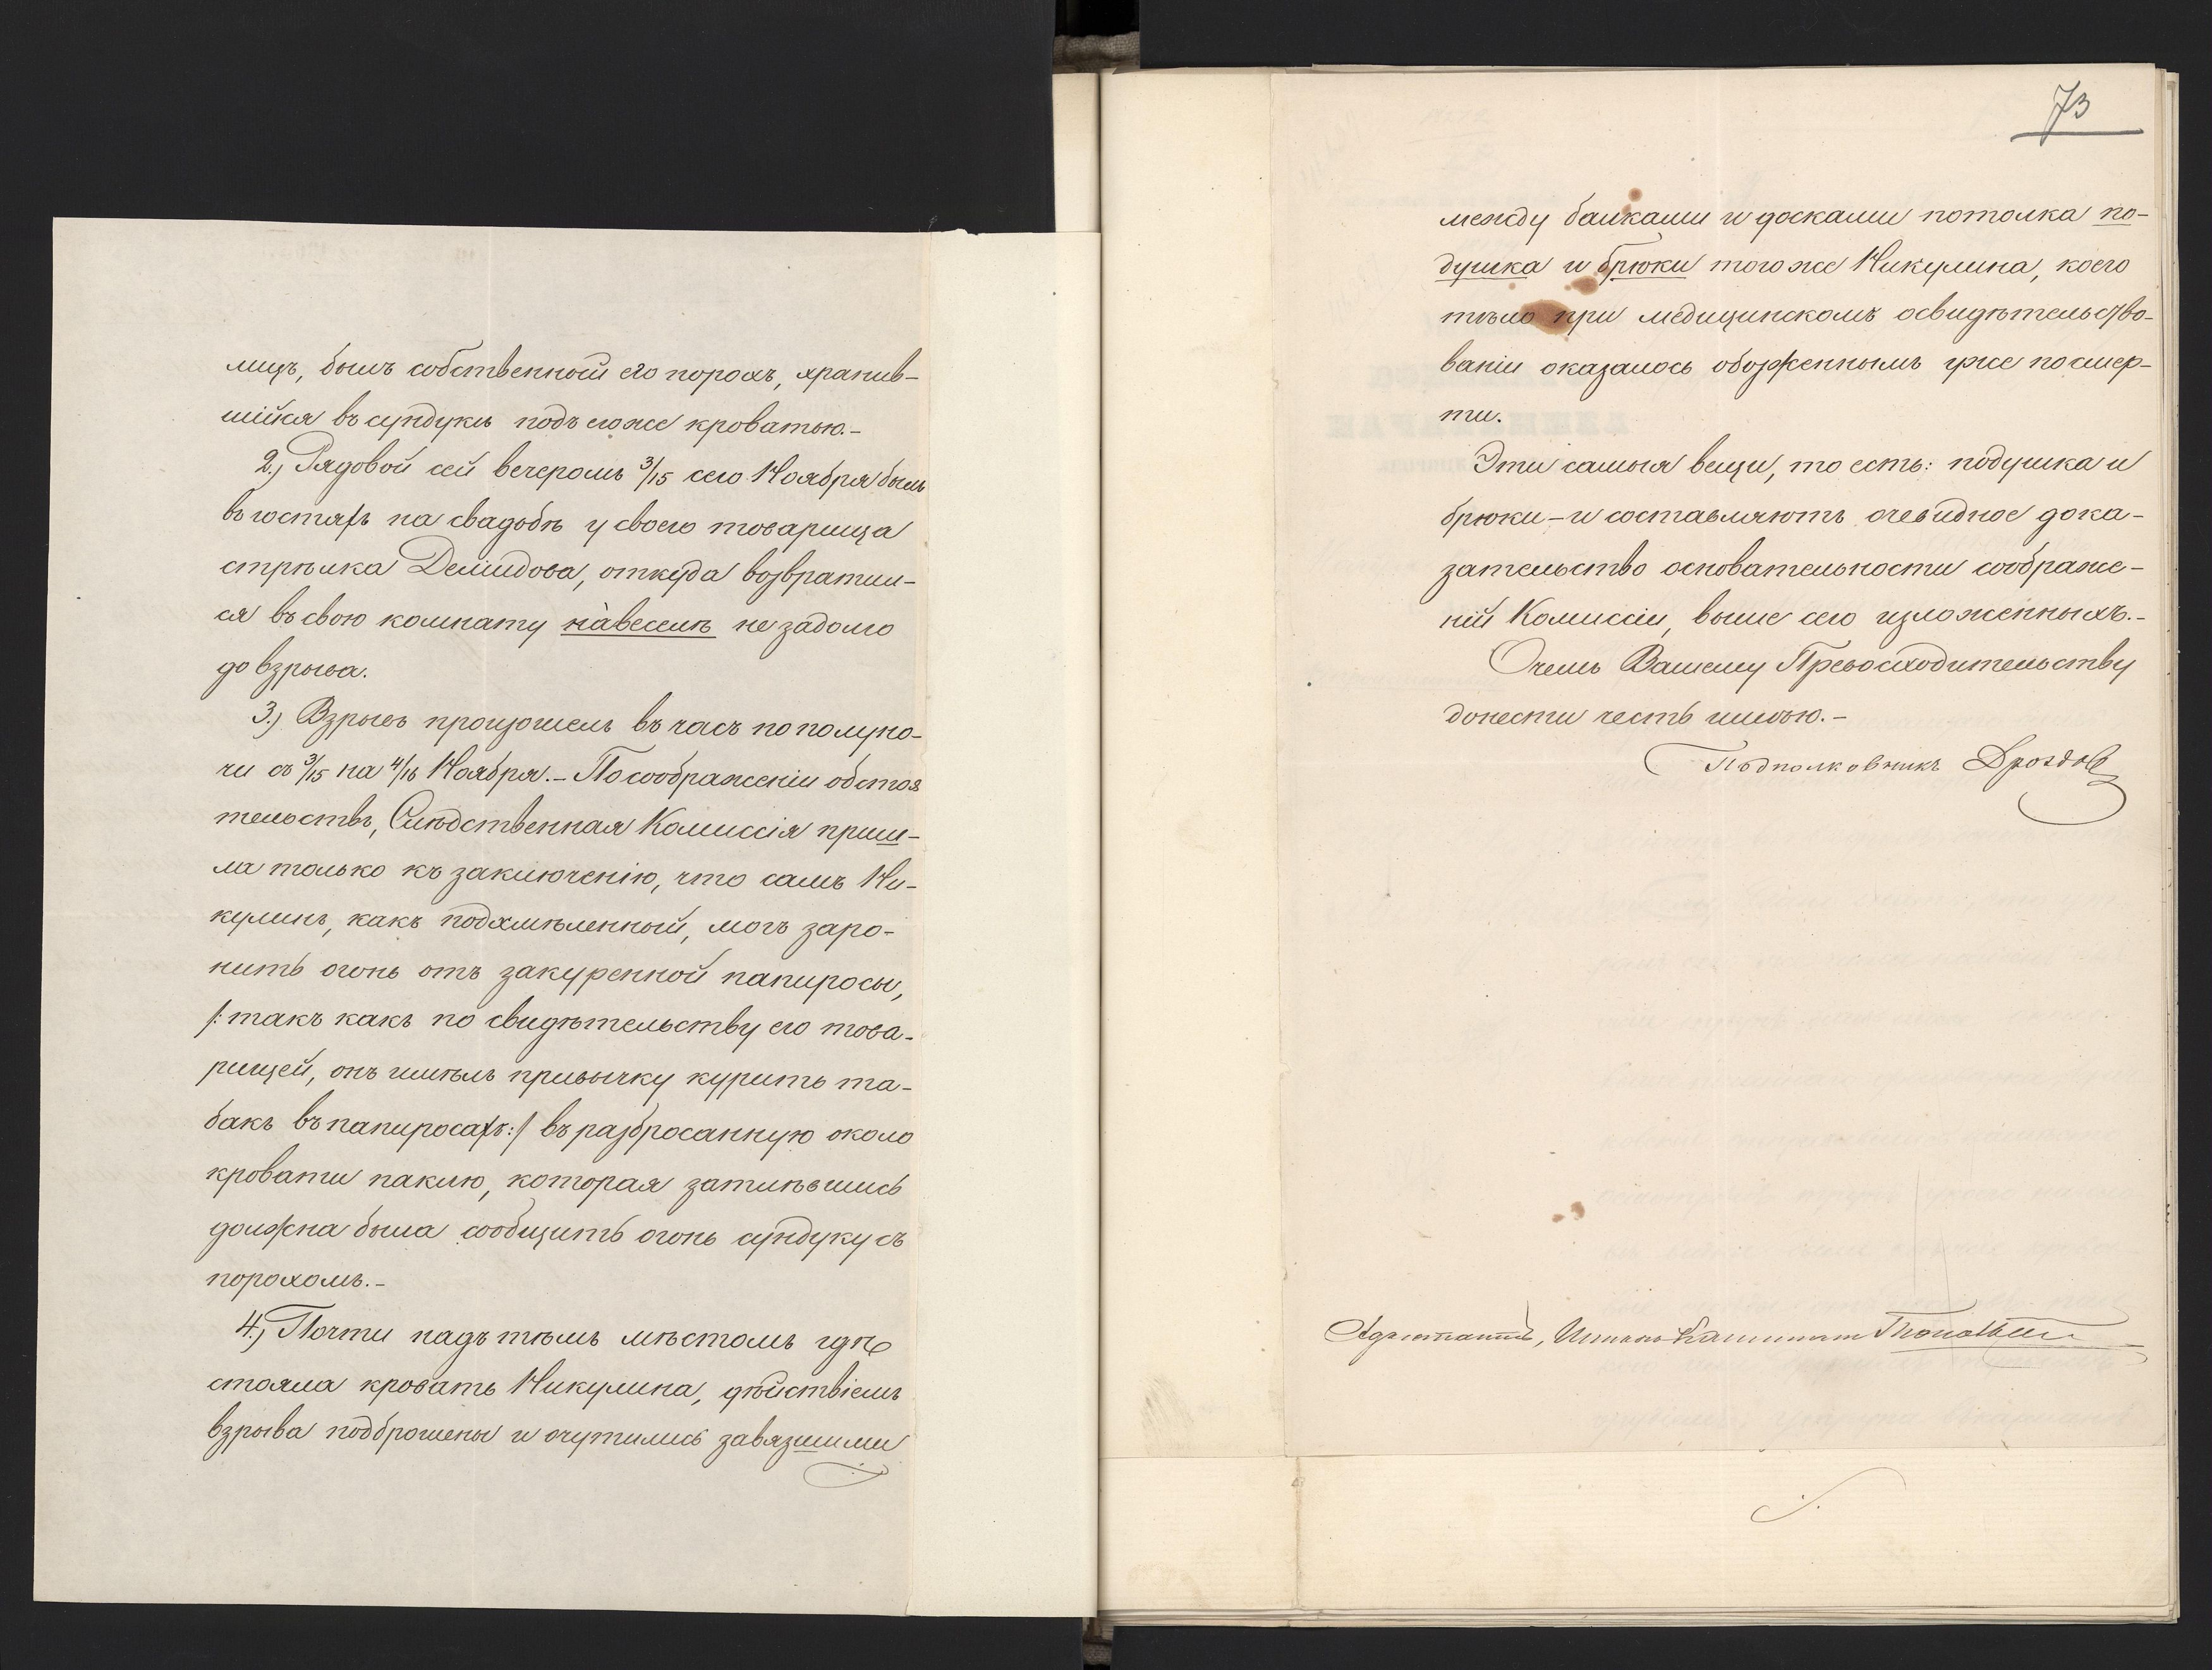 лицъ, былъ собственный его порохъ, хранив-
шійся въ сундукѣ подъ его же кроватью.-
2., Рядовой сей вечеромъ 3/15 сего Ноября былъ
въ гостяхъ на свадьбѣ у своего товарища
стрѣлка Демидова, откуда возвратил-
ся въ свою комнату навеселѣ не задолго
до взрыва.
3.) Взрывъ произошелъ въ часъ по полуно-
чи съ 3/15 на 4/16 Ноября.- По соображеніи обстоя
тельствъ, Слѣдственная Комиссія приш-
ла только къ заключенію, что самъ Ни-
кулинъ, какъ подхмѣленный, могъ заро-
нить огонь отъ закуренной папиросы,
/: такъ какъ по свидѣтельству его това-
рищей, онъ имѣлъ привычку курить та-
бакъ въ папиросахъ :/ въ разбросанную около
кровати паклю, которая затлѣвшись
должна была сообщить огонь сундуку съ
порохомъ.-
4., Почти надъ тѣмъ мѣстомъ гдѣ
стояла кровать Никулина, дѣйствіемъ
взрыва подброшены и очутились завязшими
73
между балками и досками потолка по-
душка и брюки того же Никулина, коего
тѣло при медицинскомъ освидѣтельство-
ваніи оказалось обожженнымъ уже по смер-
ти.
Эти самыя вещи, то есть: подушка и
брюки - и составляютъ очевидное дока-
зательство основательности соображе-
ній Комиссіи, выше сего изложенныхъ.-
О чемъ Вашему Превосходительству
донести честь имѣю.-
Подполковникъ Дроздов
Адъютантъ, Штабсъ Капитанъ